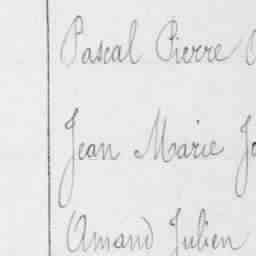 Pascal Pierre
Jean Marie Jo
Amand Julien